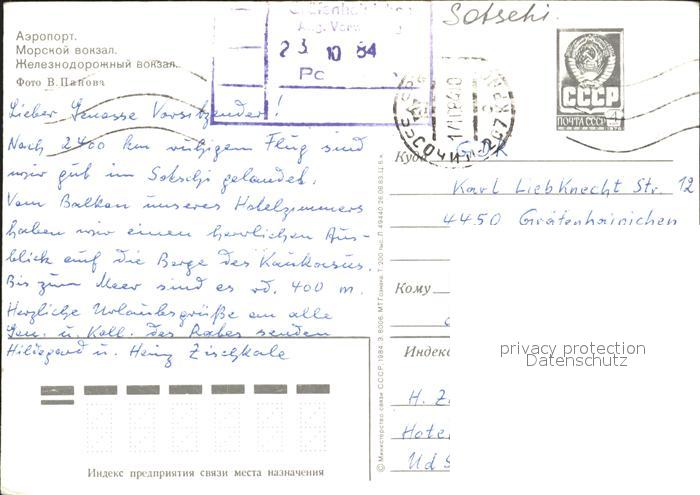 Sotschi.
Аэропорт.
Морской вокзал.
Железнодорожный вокзал.
Фото В. Панова
Gräfenhainichen
23 10 84
Pc
СССР
ПОЧТА СССР
СОЧИ
Lieber Genosse Vorsitzender!
Nach 2400 km ruhigem Flug sind
wir gut im Sotschi gelandet.
Vom Balkon unseres Hotelzimmers
haben wir einen herrlichen Aus-
blick auf die Berge des Kaukasus.
Bis zum Meer sind es rd. 400 m.
Herzliche Urlaubsgrüße an alle
Gen. u. Koll. des Rates senden
Hildegard u. Heinz Zischkale
Куда
Karl Liebknecht Str. 12
4450 Gräfenhainichen
Кому
Индекс
H. Z
Hote
UdS
privacy protection
Datenschutz
Индекс предприятия связи места назначения
© Министерство связи СССР. 1984. З. 6006. МТ Гознака.